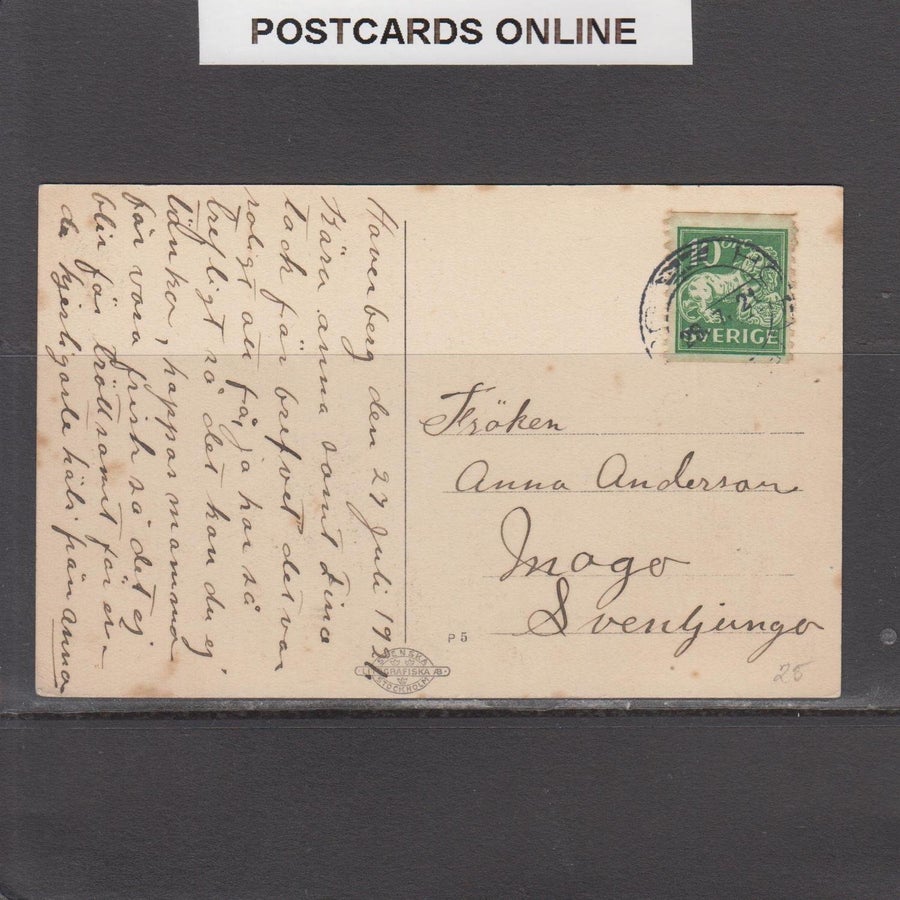 POSTCARDS ONLINE
den 27 Juli 192
Kära Anna samt
Tack för brefvet det var
roligt att få, ja har så
trefligt så det kan du ej
tänka, hoppas mamma
får vara frisk så det ej
blir för tröttsamt för er
de hjertligaste häls. från Anna
10 ÖRE
SVERIGE
Fröken
Anna Anderson
Svenljunga
P 5
SVENSKA
LITOGRAFISKA AB
STOCKHOLM
25